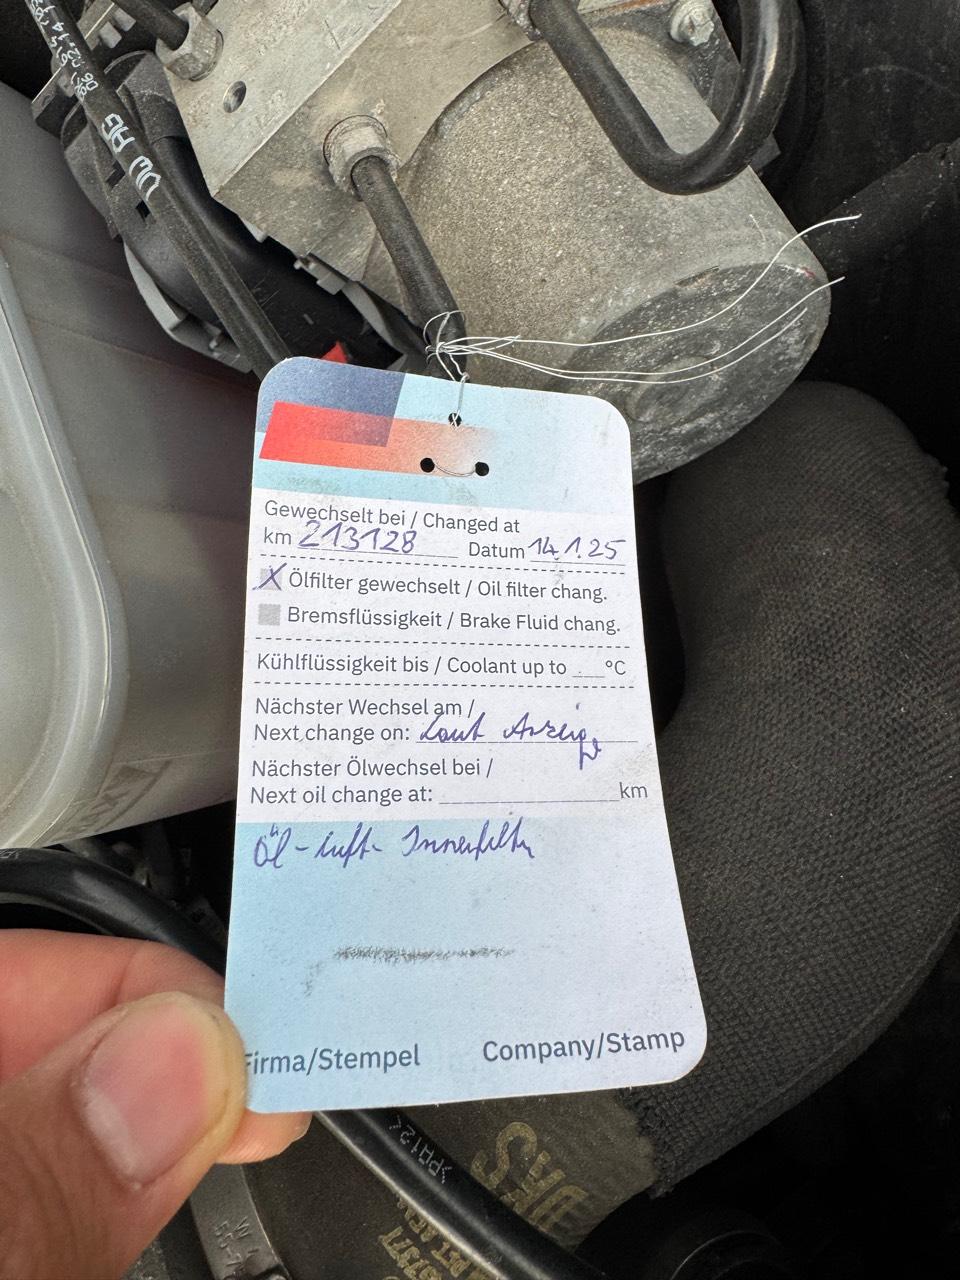 VW AG
Gewechselt bei / Changed at
km 213128 Datum 14.1.25
X Ölfilter gewechselt / Oil filter chang.
Bremsflüssigkeit / Brake Fluid chang.
Kühlflüssigkeit bis / Coolant up to ___°C
Nächster Wechsel am /
Next change on: Laut Anzeige
Nächster Ölwechsel bei /
Next oil change at: ______________km
Öl-Luft-Innenfilter
Firma/Stempel Company/Stamp
>PA12<